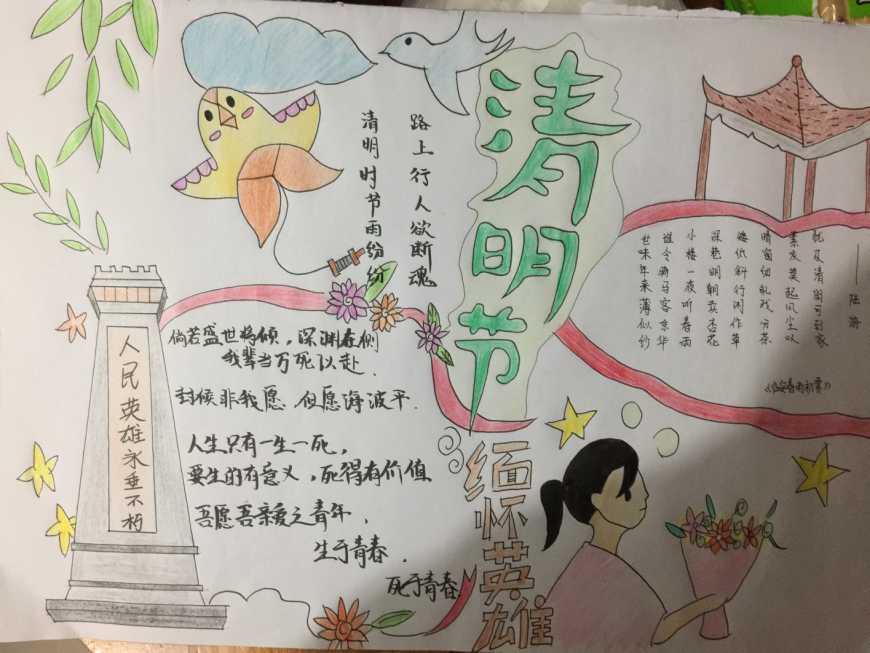 清明节
清明时节雨纷纷
路上行人欲断魂
人民英雄永垂不朽
倘若盛世将倾，深渊在侧
我辈当万死以赴.
封候非我愿，但愿海波平.
人生只有一生一死，
要生的有意义，死得有价值
吾愿吾亲爱之青年，
生于青春，
死于青春
缅怀英雄
世味年来薄似纱
谁令骑马客京华
小楼一夜听春雨
深巷明朝卖杏花
矮纸斜行闲作草
晴窗细乳戏分茶
素衣莫起风尘叹
犹及清明可到家
——陆游
《临安春雨初霁》